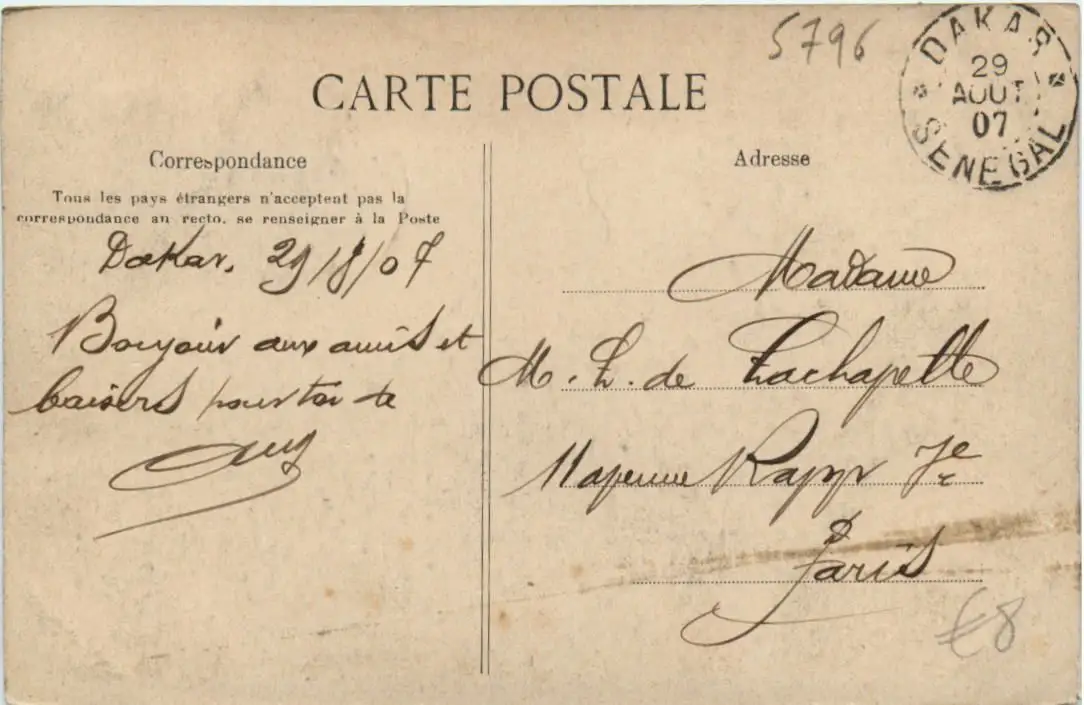 5796
DAKAR
29
AOUT
07
SENEGAL
CARTE POSTALE
Correspondance
Tous les pays étrangers n'acceptent pas la
correspondance au recto, se renseigner à la Poste
Dakar, 29/8/07
Bonjour aux amis et
baisers pour toi de
Adresse
Madame
M. L. de Lachapelle
11 avenue Rapp 7e
Paris
€8